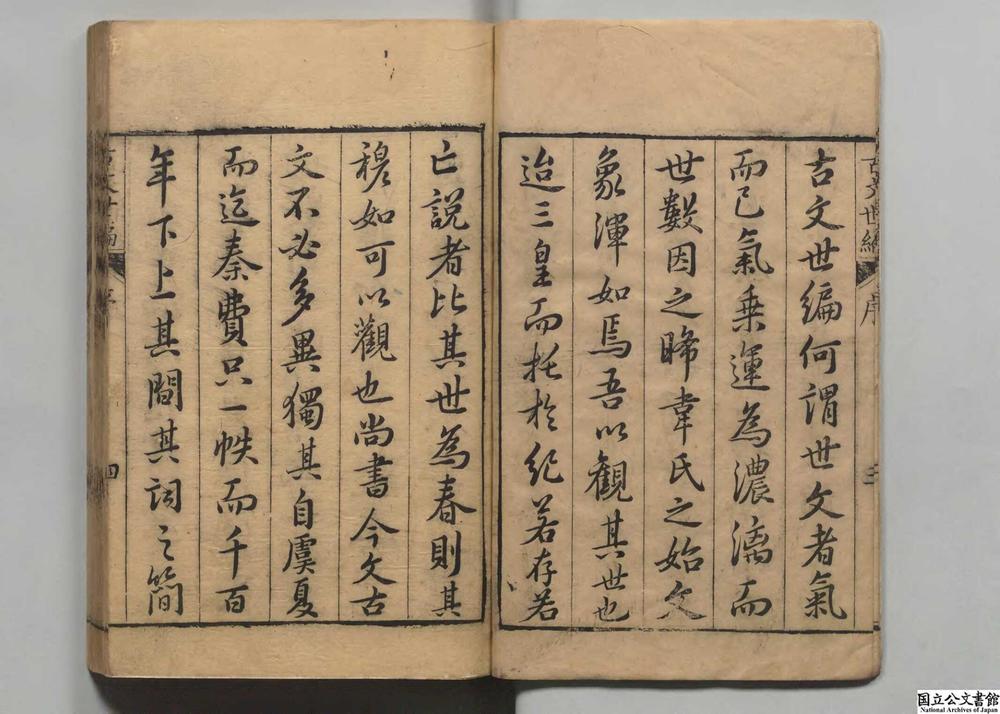 古文世編 序 三
古文世編何謂世文者氣
而已氣乗運為濃漓而
世數因之晞韋氏之始文
象渾如焉吾以觀其世也
迨三皇而托於紀若存若
亡說者比其世為春則其
穆如可以觀也尚書今文古
文不必多異獨其自虞夏
而迄秦費只一帙而千百
年下上其間其詞之簡
古文世編 序 四
国立公文書館
National Archives of Japan